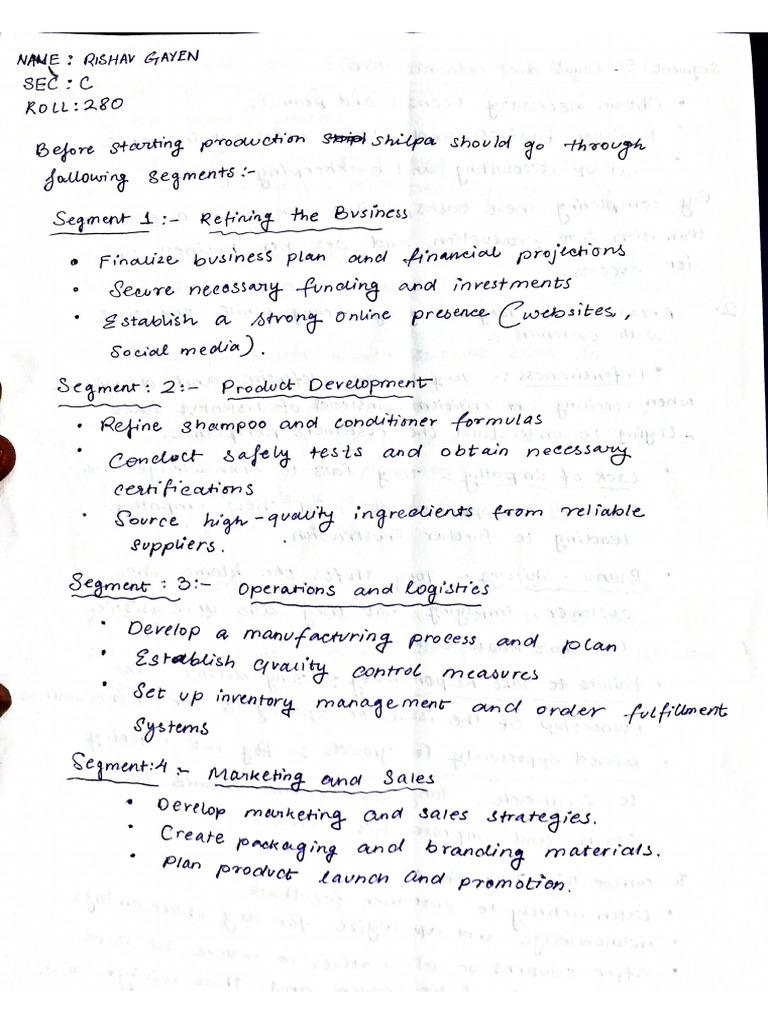 NAME : RISHAV GAYEN
SEC : C
ROLL : 280
Before starting production shilpa should go through
following segments :-
Segment 1 :- Refining the Business
• Finalize business plan and financial projections
• Secure necessary funding and investments
• Establish a strong online presence (websites,
social media).
Segment : 2 :- Product Development
• Refine shampoo and conditioner formulas
• Conduct safely tests and obtain necessary
certifications
• Source high-quality ingredients from reliable
suppliers.
Segment : 3 :- Operations and logistics
• Develop a manufacturing process and plan
• Establish quality control measures
• Set up inventory management and order fulfillment
systems
Segment : 4 :- Marketing and Sales
• Develop marketing and sales strategies.
• Create packaging and branding materials.
• Plan product launch and promotion.